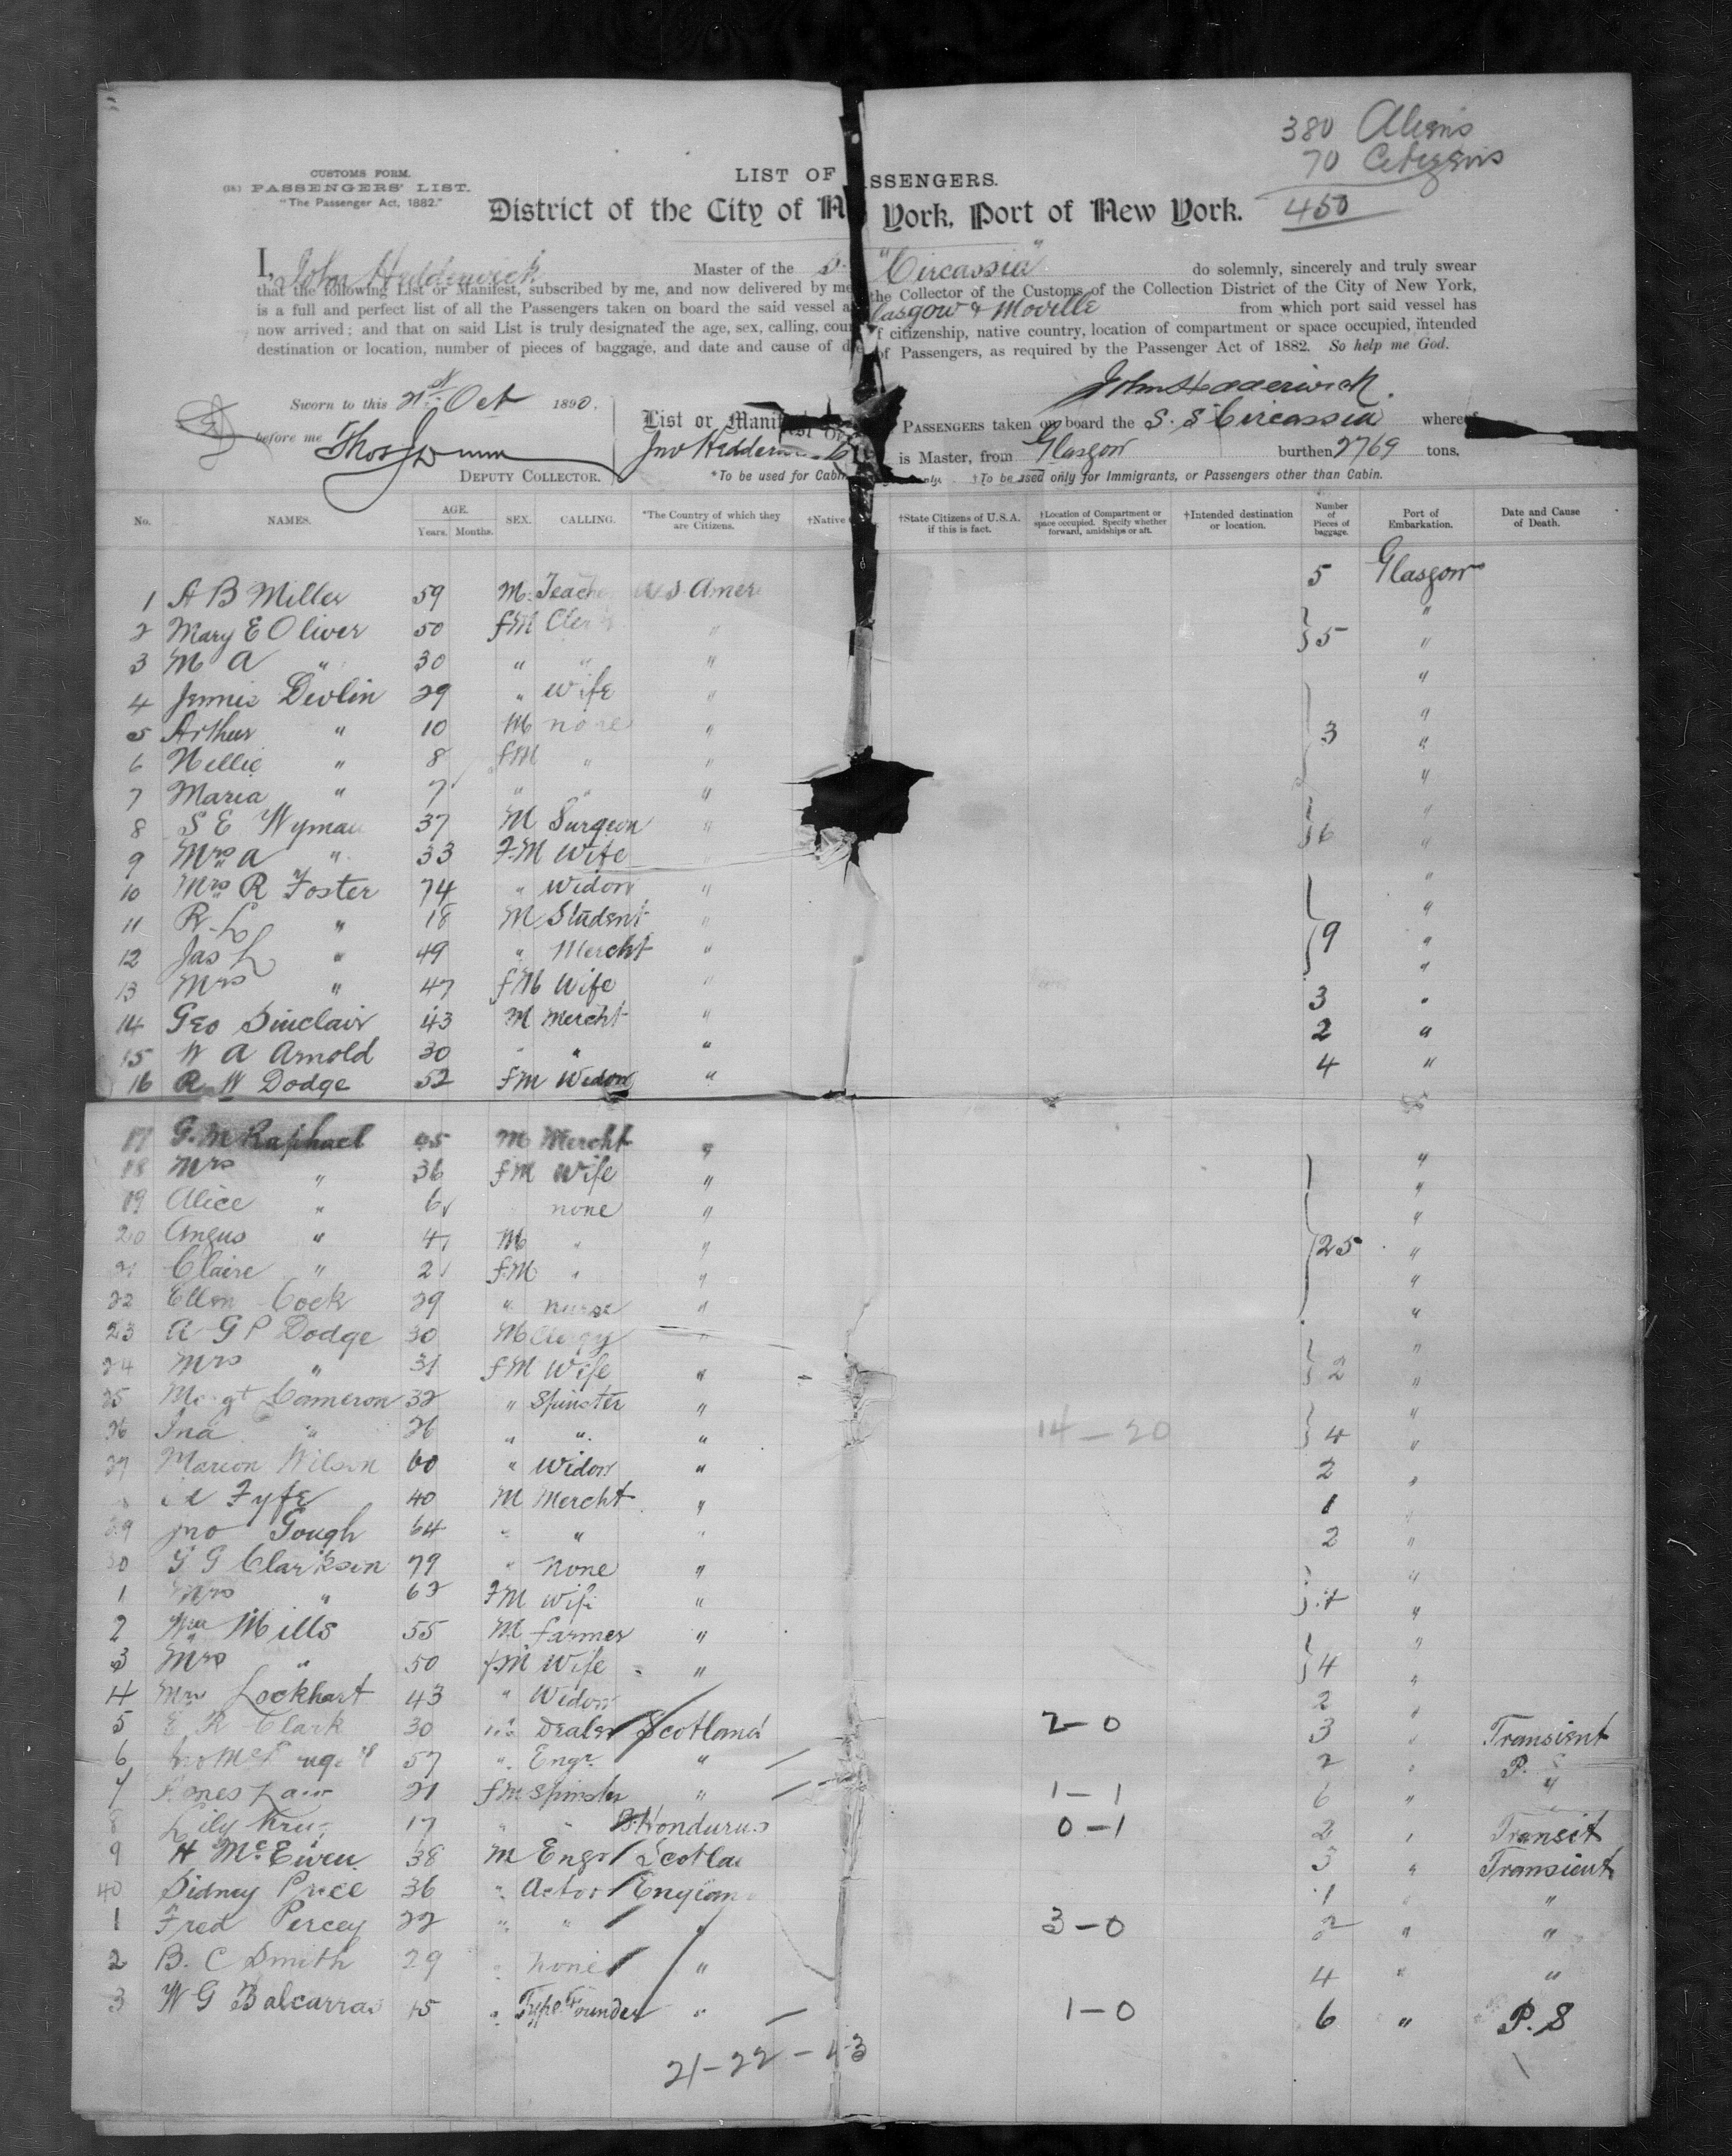 380 Aliens
70 Citizens
450
CUSTOMS FORM.
PASSENGERS' LIST.
"The Passenger Act, 1882."
LIST OF SSENGERS.
District of the City of N York, Port of New York.
I, John Hedderwick Master of the S. "Circassia" do solemnly, sincerely and truly swear
that the following List or Manifest, subscribed by me, and now delivered by me the Collector of the Customs of the Collection District of the City of New York,
is a full and perfect list of all the Passengers taken on board the said vessel lasgow & Moville from which port said vessel has
now arrived; and that on said List is truly designated the age, sex, calling, coun f citizenship, native country, location of compartment or space occupied, intended
destination or location, number of pieces of baggage, and date and cause of de of Passengers, as required by the Passenger Act of 1882. So help me God.
John Hedderwick.
Sworn to this 21st Oct 1890.
before me Thos
DEPUTY COLLECTOR.
List or Manifest OF PASSENGERS taken on board the S. S Circassia whereof
Jno Hedderwick is Master, from Glasgow burthen 2769 tons.
*To be used for Cabin only. †To be used only for Immigrants, or Passengers other than Cabin.
No. NAMES. AGE. Years. Months. SEX. CALLING. *The Country of which they are Citizens. †Native †State Citizens of U.S.A. if this is fact. †Location of Compartment or space occupied. Specify whether forward, amidships or aft. †Intended destination or location. Number of Pieces of baggage. Port of Embarkation. Date and Cause of Death.
1 A B Miller 59 M. Teacher U S Amer 5 Glasgow
2 Mary E Oliver 50 fM Clerk " "
3 M A " 30 " " " 5 "
4 Jennie Devlin 29 " Wife " "
5 Arthur " 10 M none " "
6 Nellie " 8 fM " " 3 "
7 Maria " 7 " " " "
8 S E Wyman 37 M Surgeon " "
9 Mrs A " 33 F.M Wife " 6 "
10 Mrs R Foster 74 " Widow " "
11 R L " 18 M Student " "
12 Jas L " 49 " Mercht " 9 "
13 Mrs " 47 fM Wife " "
14 Geo Sinclair 43 M Mercht " 3 "
15 W A Arnold 30 " " " 2 "
16 R W Dodge 52 fM Widow " 4 "
17 G. M Raphael 45 M Mercht "
18 Mrs " 36 fM Wife " "
19 Alice " 6 none " "
20 Angus " 4 M " " "
21 Claire " 2 f.M " " 25 "
22 Ellen Cock 29 " nurse " "
23 A G P Dodge 30 M Clergy " "
24 Mrs " 31 fM Wife " 2 "
25 Margt Cameron 32 " Spinster " "
26 Ina " 26 " " " 14–20 4 "
27 Marion Wilson 60 " Widow " 2 "
Fyfe 40 M Mercht " 1 "
29 Jno Gough 64 " " " 2 "
30 G G Clarkson 79 " None " "
1 Mrs " 62 F.M Wife " "
2 Wm Mills 55 M. farmer " "
3 Mrs " 50 f.M Wife " 4 "
4 Mrs Lockhart 43 " Widow 2 "
5 E R Clark 30 Dealer Scotland 2–0 3 " Transient
6 57 " Engr. " 2 " P. S
7 Agnes Law 21 fM Spinster " 1–1 6 " "
8 Lily 17 " " B. Hondurus 0–1 2 " Transit
9 H McEwen 38 M Engr Scotla 3 " Transient
40 Sidney Price 36 " Actor England 1 " "
1 Fred Percey 22 " " " 3–0 2 " "
2 B. C Smith 29 " none " 4 " "
3 W G Balcarras 45 " Type Founder " 1–0 6 " P. S
21–22–43